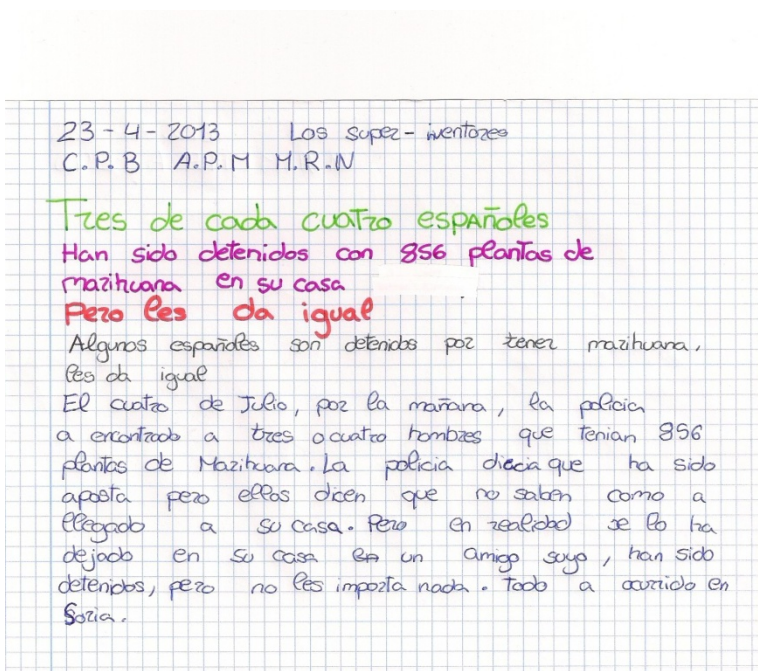 23-4-2013 Los super-iventores
C.P.B A.P.M M.R.N
Tres de cada cuatro españoles
Han sido detenidos con 856 plantas de
marihuana en su casa
Pero les da igual
Algunos españoles son detenidos por tener marihuana,
les da igual
El cuatro de Julio, por la mañana, la policia
a encontrado a tres o cuatro hombres que tenian 856
plantas de Marihuana. La policia diecia que ha sido
aposta pero ellos dicen que no saben como a
llegado a su casa. Pero en realidad se lo ha
dejado en su casa en un amigo suyo, han sido
detenidos, pero no les importa nada. Todo a ocurrido en
Soria.